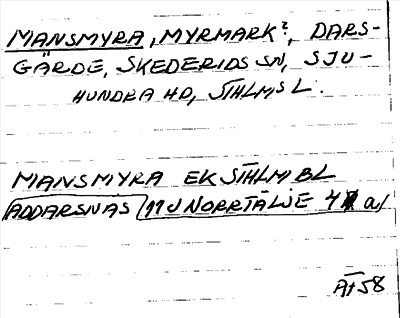 MANSMYRA, MYRMARK?, DARS-
GÄRDE, SKEDERIDS SN, SJU-
HUNDRA HD, STHLMS L.
MANSMYRA EK STHLM BL
ADDARSNÄS 11J NORRTÄLJE 4 a/
ÄT 58